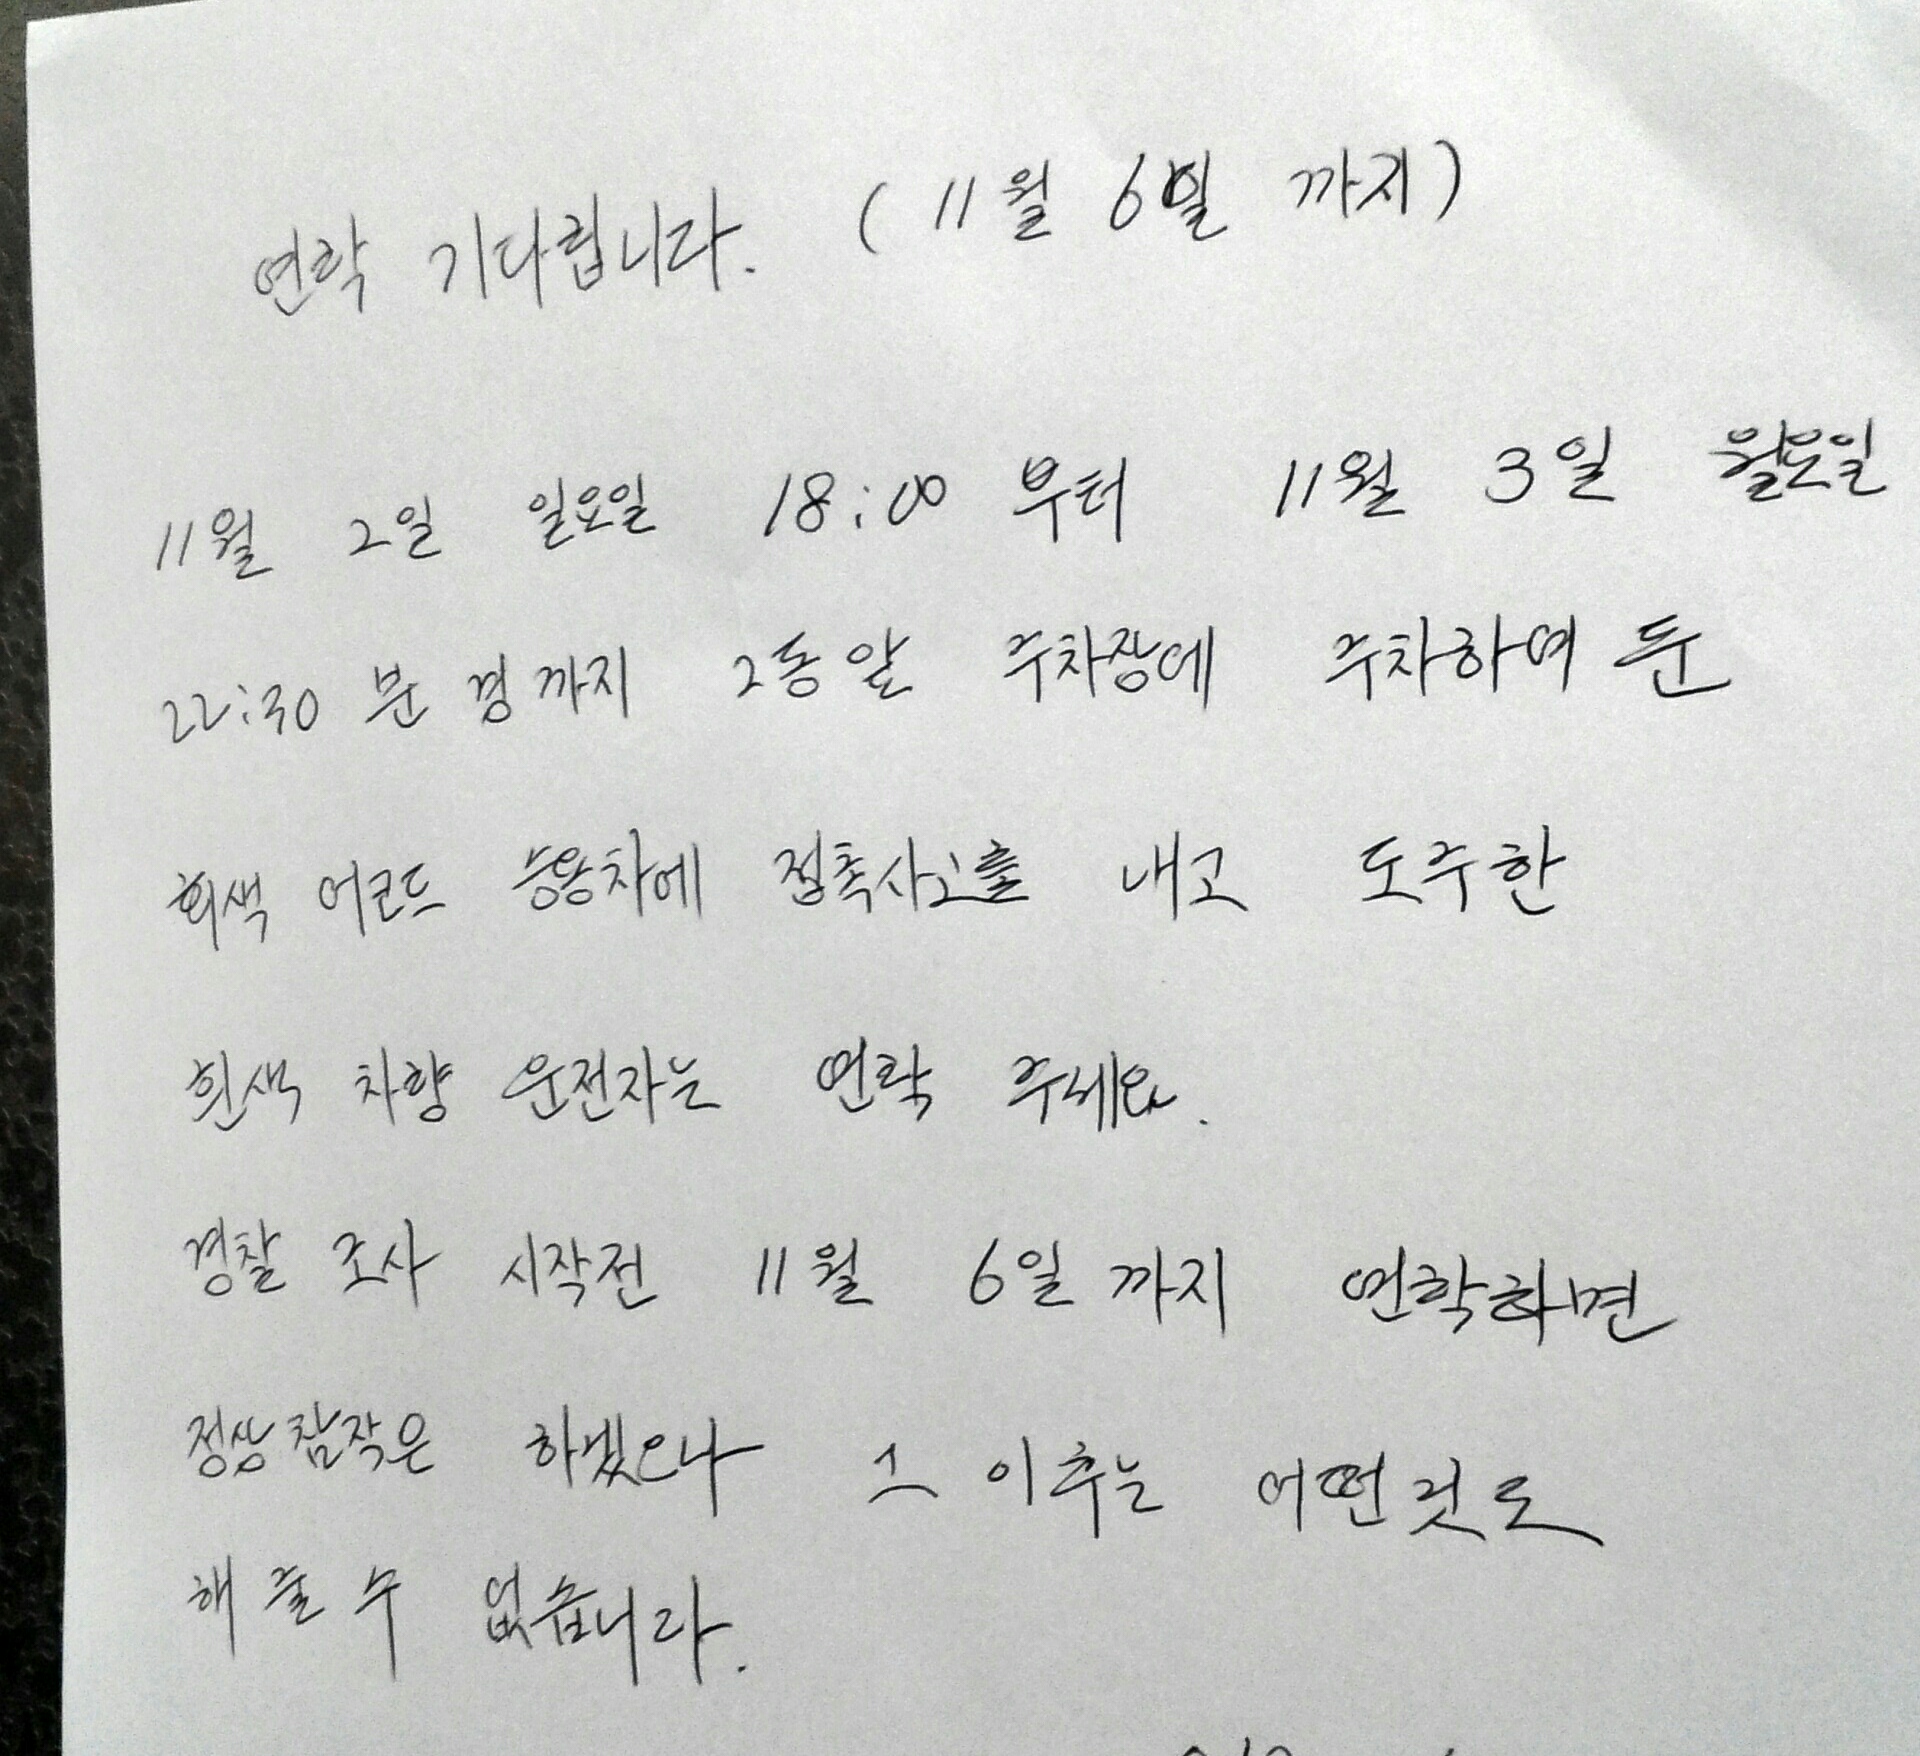 연락 기다립니다. (11월 6일 까지)
11월 2일 일요일 18:00 부터 11월 3일 월요일
22:30 분 경까지 2동앞 주차장에 주차하여 둔
흰색 어코드 승용차에 접촉사고를 내고 도주한
흰색 차량 운전자는 연락 주세요.
경찰 조사 시작전 11월 6일 까지 연락하면
정상참작은 하겠으나 그 이후는 어떤것도
해 줄 수 없습니다.